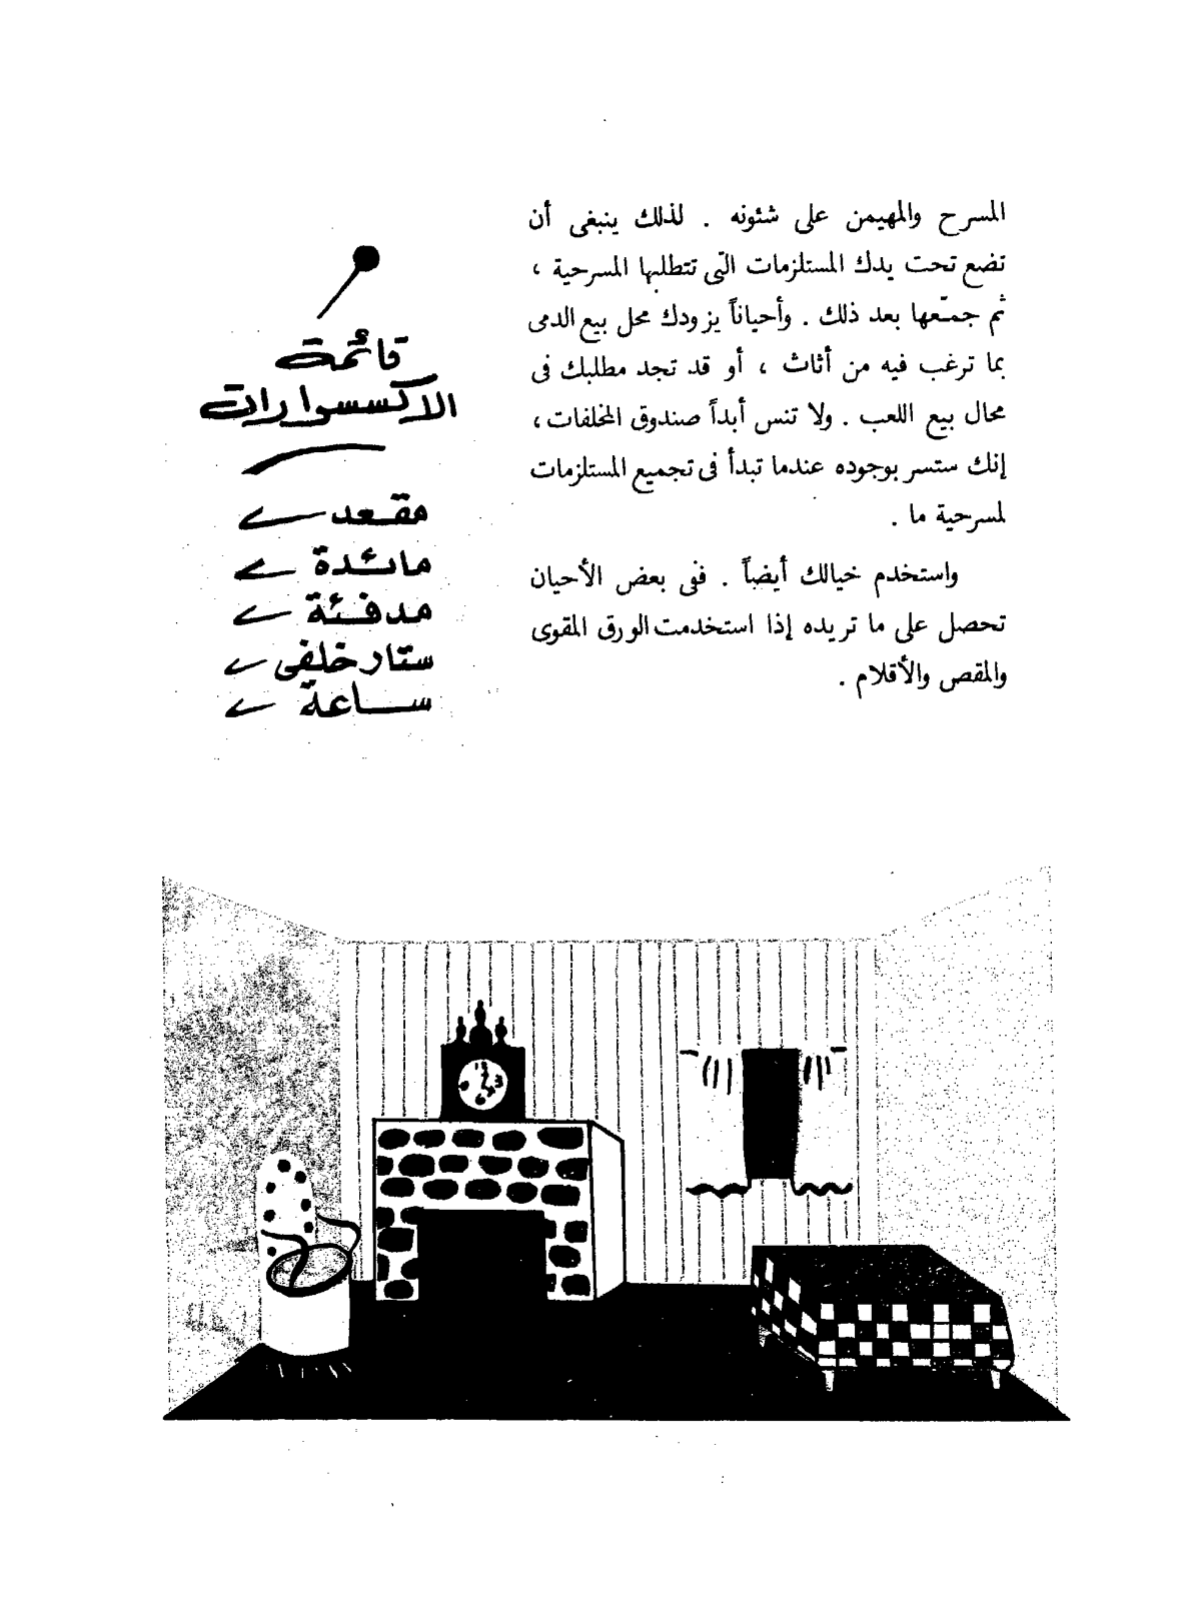 المسرح والمهيمن على شئونه . لذلك ينبغى أن
تضع تحت يدك المستلزمات التى تتطلبها المسرحية ،
ثم جمّعها بعد ذلك . وأحياناً يزودك محل بيع الدمى
بما ترغب فيه من أثاث ، أو قد تجد مطلبك فى
محال بيع اللعب . ولا تنس أبداً صندوق المخلفات ،
إنك ستسر بوجوده عندما تبدأ فى تجميع المستلزمات
لمسرحية ما .
واستخدم خيالك أيضاً . ففى بعض الأحيان
تحصل على ما تريده إذا استخدمت الورق المقوى
والمقص والأقلام .
قائمة
الاكسسوارات
مقعد
مائدة
مدفئة
ستار خلفى
ساعة